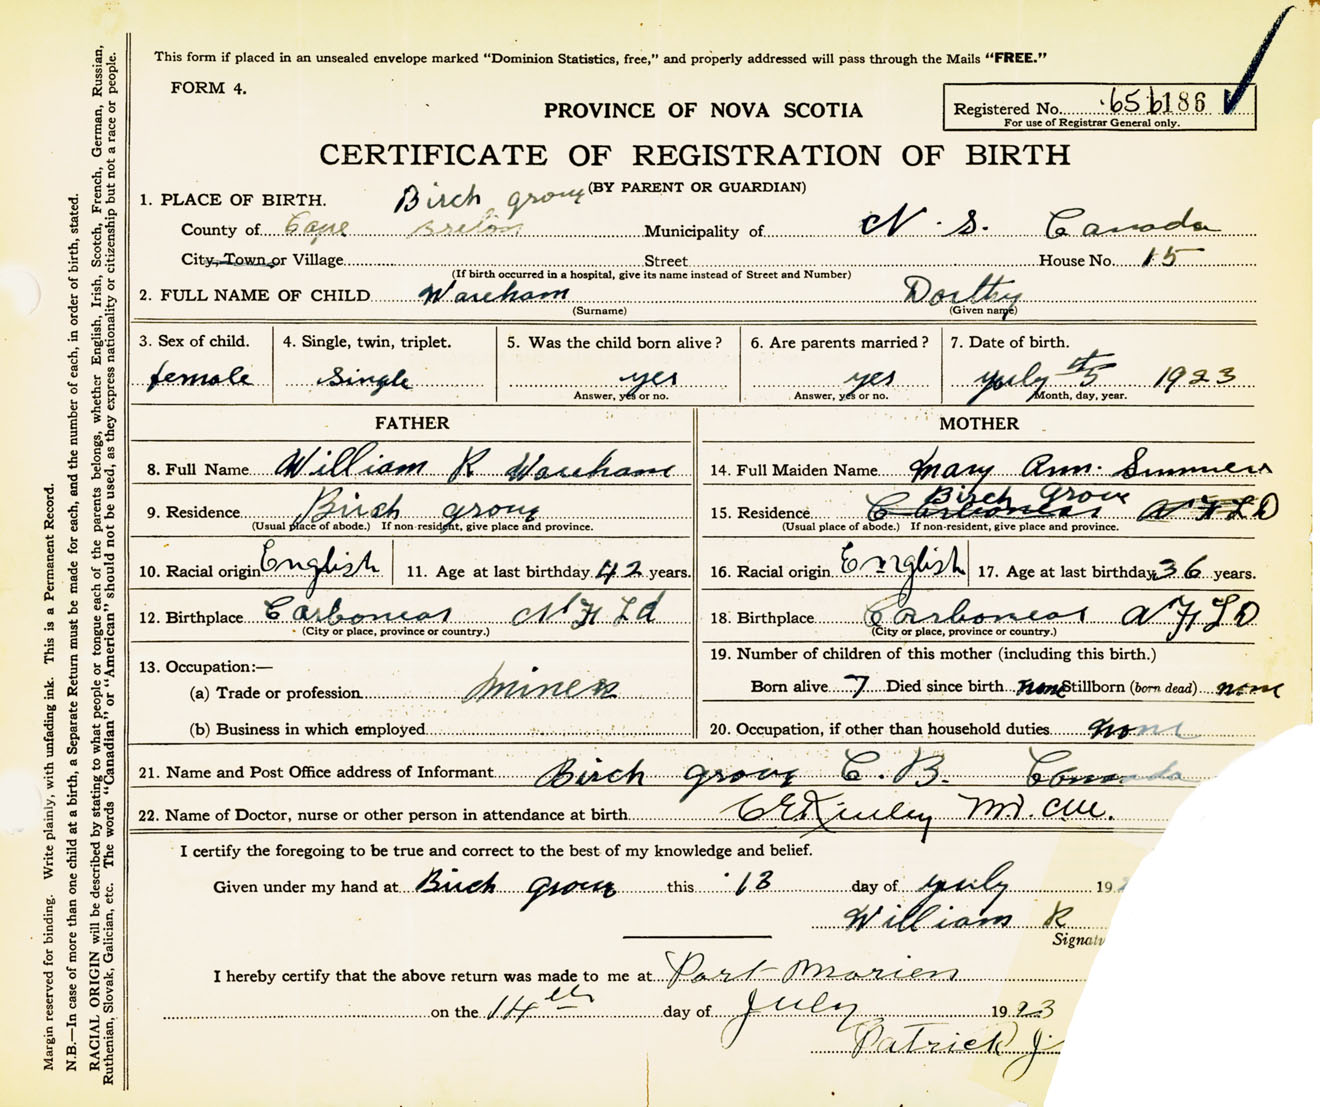 This form if placed in an unsealed envelope marked "Dominion Statistics, free," and properly addressed will pass through the Mails "FREE."
FORM 4.
PROVINCE OF NOVA SCOTIA
Registered No. 656186
For use of Registrar General only.
CERTIFICATE OF REGISTRATION OF BIRTH
(BY PARENT OR GUARDIAN)
1. PLACE OF BIRTH. Birch grove
County of Cape Breton Municipality of N. S. Canada
City, Town or Village Street House No. 15
(If birth occurred in a hospital, give its name instead of Street and Number)
2. FULL NAME OF CHILD Wareham Dorthy
(Surname) (Given name)
3. Sex of child. 4. Single, twin, triplet. 5. Was the child born alive? 6. Are parents married? 7. Date of birth.
female single yes yes yuly 5th 1923
Answer, yes or no. Answer, yes or no. Month, day, year.
FATHER MOTHER
8. Full Name William R Wareham 14. Full Maiden Name Mary Ann. Summers
9. Residence Birch grove 15. Residence Carbonear Birch Grove N F L D
(Usual place of abode.) If non-resident, give place and province. (Usual place of abode.) If non-resident, give place and province.
10. Racial origin English 11. Age at last birthday 42 years. 16. Racial origin English 17. Age at last birthday 36 years.
12. Birthplace Carbonear N F Ld 18. Birthplace Carbonear N F L D
(City or place, province or country.) (City or place, province or country.)
13. Occupation:— 19. Number of children of this mother (including this birth.)
(a) Trade or profession miner Born alive 7 Died since birth none Stillborn (born dead) none
(b) Business in which employed 20. Occupation, if other than household duties none
21. Name and Post Office address of Informant Birch grove C. B. Canada
22. Name of Doctor, nurse or other person in attendance at birth
I certify the foregoing to be true and correct to the best of my knowledge and belief.
Given under my hand at Birch grove this 13 day of yuly 19
William R
Signatu
I hereby certify that the above return was made to me at Port Morien
on the 14th day of July 1923
Patrick J.
Margin reserved for binding. Write plainly, with unfading ink. This is a Permanent Record.
N.B.—In case of more than one child at a birth, a Separate Return must be made for each, and the number of each, in order of birth, stated.
RACIAL ORIGIN will be described by stating to what people or tongue each of the parents belongs, whether English, Irish, Scotch, French, German, Russian,
Ruthenian, Slovak, Galician, etc. The words "Canadian" or "American" should not be used, as they express nationality or citizenship but not a race or people.